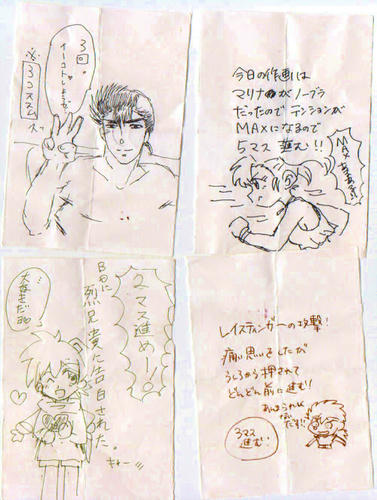 3回
イーコトしようぜ
※
3コススム
今日の作画は
マリナがノーブラ
だったので テンションが
MAXになるので
5マス 進む!!
MAX
2マス進めー!
烈兄貴に告白された。
大好きだぜ
きゃー
レイスティンガーの攻撃!
痛い思いをしたが
うしろから押されて
どんどん前に進む!!
3マス
進む